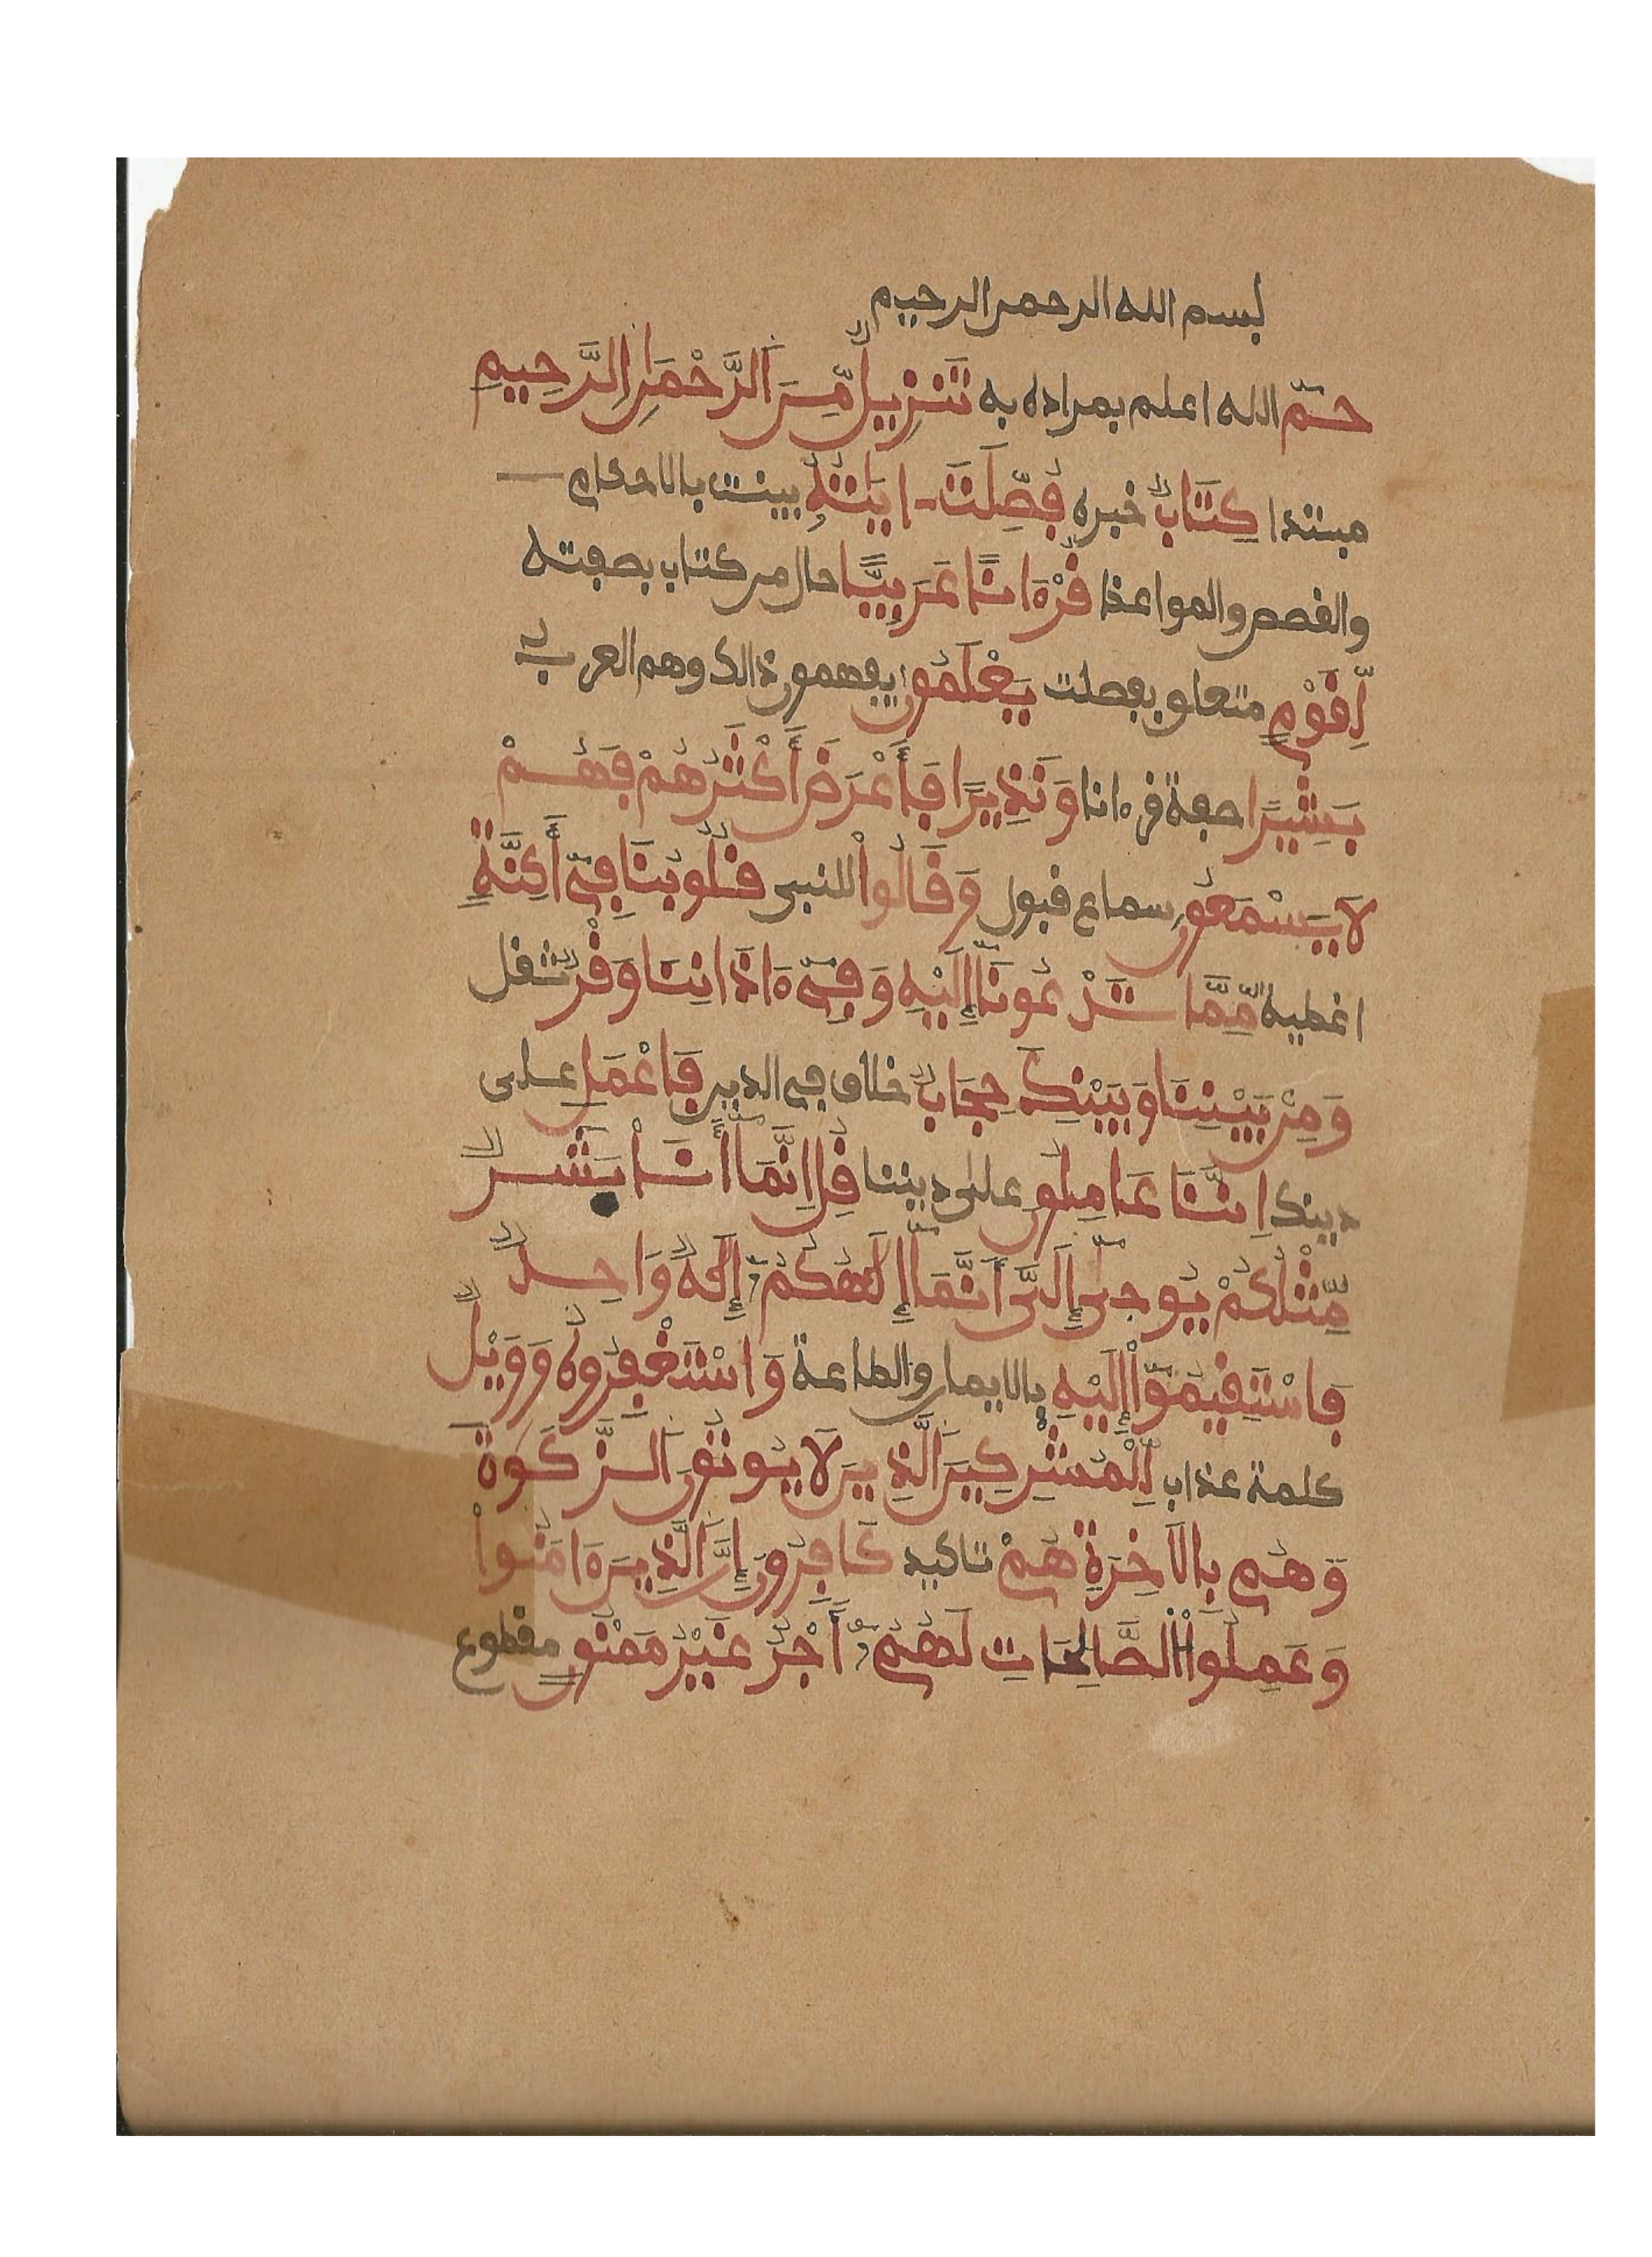 بسم الله الرحمن الرحيم
حـمّ الله اعلم بمراده به تَنزِيلٌ مِّنَ اَلرَّحْمَٰنِ اِلرَّحِيمِ
مبتدا كِتَابٌ خبره فُصِّلَتَ ايَٰتُهُ بينت بالاحكام
والقصص والمواعظ قُرْءَاناً عَرَبِيّاً حال من كتاب بصفته
لِّقَوْمٍ متعلق بفصلت يَعْلَمُونَ يفهمون ذالك وهم العرب
بَشِيراً صفة قرءانا وَنَذِيراً فَأَعْرَضَ أَكْثَرُهُمْ فَهُمْ
لَا يَسْمَعُونَ سماع قبول وَقَالُواْ للنبي قُلُوبُنَا فِي أَكِنَّةٍ
اغطية مِّمَّا تَدْعُونَا إِلَيْهِ وَفِي ءَاذَانِنَا وَقْرٌ ثقل
وَمِنْ بَيْنِنَا وَبَيْنِكَ حِجَابٌ خلاف في الدين فَاعْمَل على
دينك اِنَّنَا عَامِلُونَ على ديننا قُلِ اِنَّمَا أَنَا بَشَرٌ
مِّثْلُكُمْ يُوحىٰ إِلَيَّ أَنَّمَا إِلَٰهُكُمُ إِلَٰهٌ وَاحِدٌ
فَاسْتَقِيمُواْ إِلَيْهِ بالايمان والطاعة وَاسْتَغْفِرُوهُ وَوَيْلٌ
كلمة عذاب لِّلْمُشْرِكِينَ اَلَّذِينَ لَا يُوتُونَ اَلزَّكَوٰةَ
وَهُم بِالَاخِرَةِ هُمْ تاكيد كَافِرُونَ إِنَّ اَلَّذِينَ ءَامَنُواْ
وَعَمِلُواْ اُلصَّالِحَاتِ لَهُمُ أَجْرٌ غَيْرُ مَمْنُونٍ مقطوع